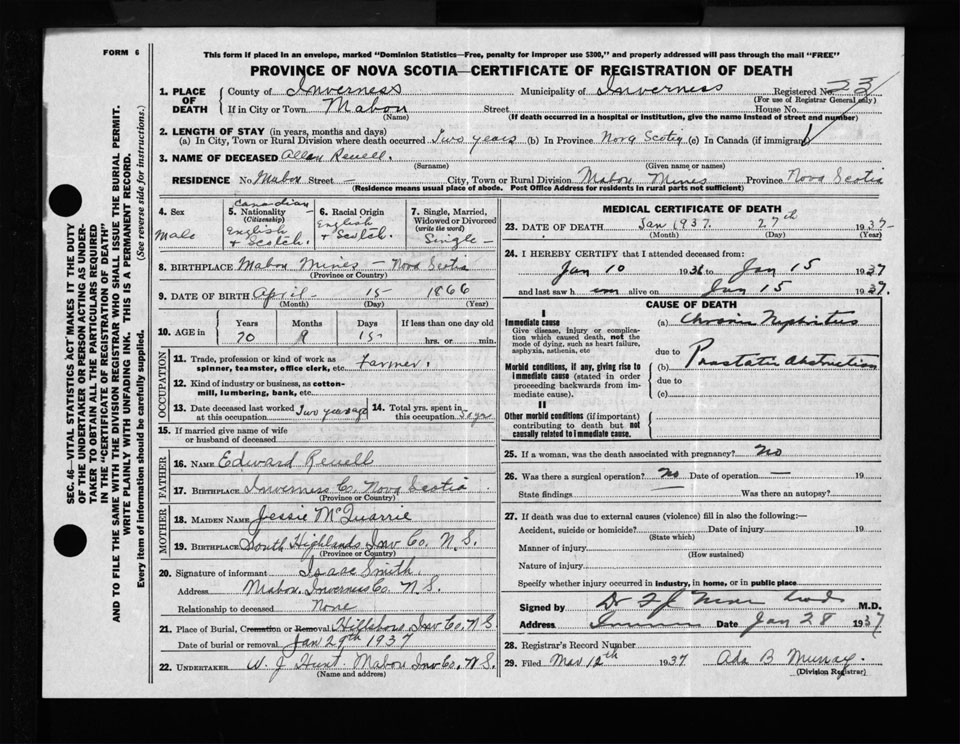 FORM 6
This form if placed in an envelope, marked "Dominion Statistics—Free, penalty for improper use $300," and properly addressed will pass through the mail "FREE"
PROVINCE OF NOVA SCOTIA—CERTIFICATE OF REGISTRATION OF DEATH
SEC. 46—VITAL STATISTICS ACT MAKES IT THE DUTY
OF THE UNDERTAKER OR PERSON ACTING AS UNDER-
TAKER TO OBTAIN ALL THE PARTICULARS REQUIRED
IN THE "CERTIFICATE OF REGISTRATION OF DEATH"
AND TO FILE THE SAME WITH THE DIVISION REGISTRAR WHO SHALL ISSUE THE BURIAL PERMIT.
WRITE PLAINLY WITH UNFADING INK. THIS IS A PERMANENT RECORD.
Every item of information should be carefully supplied. (See reverse side for instructions.)
1. PLACE OF DEATH County of Inverness Municipality of Inverness Registered No. 23
(For use of Registrar General only)
If in City or Town Mabou Street House No.
(Name) (If death occurred in a hospital or institution, give the name instead of street and number)
2. LENGTH OF STAY (in years, months and days)
(a) In City, Town or Rural Division where death occurred Two years (b) In Province Nova Scotia (c) In Canada (if immigrant)
3. NAME OF DECEASED Allan Revell.
(Surname) (Given name or names)
RESIDENCE No. Mabou Street — City, Town or Rural Division Mabou Mines Province Nova Scotia
(Residence means usual place of abode. Post Office Address for residents in rural parts not sufficient)
4. Sex Male
5. Nationality (Citizenship) Canadian English & Scotch.
6. Racial Origin English & Scotch.
7. Single, Married, Widowed or Divorced (write the word) Single —
8. BIRTHPLACE Mabou Mines — Nova Scotia
(Province or Country)
9. DATE OF BIRTH April 15 1866
(Month) (Day) (Year)
10. AGE in Years Months Days If less than one day old
70 15 hrs. or min.
OCCUPATION
11. Trade, profession or kind of work as spinner, teamster, office clerk, etc. Farmer.
12. Kind of industry or business, as cotton-mill, lumbering, bank, etc.
13. Date deceased last worked at this occupation Two years ago 14. Total yrs. spent in this occupation
15. If married give name of wife or husband of deceased
FATHER
16. NAME Edward Revell
17. BIRTHPLACE Inverness Co. Nova Scotia
(Province or Country)
MOTHER
18. MAIDEN NAME Jessie McQuarrie
19. BIRTHPLACE South Highlands Inv Co. N.S.
(Province or Country)
20. Signature of informant Isaac Smith.
Address Mabou, Inverness Co. N.S.
Relationship to deceased None
21. Place of Burial, Cremation or Removal Hillsboro Inv Co. N.S.
Date of burial or removal Jan 29th 1937
22. UNDERTAKER W. J Hunt. Mabou Inv Co. N.S.
(Name and address)
MEDICAL CERTIFICATE OF DEATH
23. DATE OF DEATH Jan 1937. 27th 1937
(Month) (Day) (Year)
24. I HEREBY CERTIFY that I attended deceased from:
Jan 10 193 to Jan 15 1937
and last saw h im alive on Jan 15 1937.
CAUSE OF DEATH
I
Immediate cause
Give disease, injury or complication which caused death, not the mode of dying, such as heart failure, asphyxia, asthenia, etc
(a) Chronic Nephritis
due to
Morbid conditions, if any, giving rise to immediate cause (stated in order proceeding backwards from immediate cause).
(b) Prostatic Obstruction
due to
(c)
II
Other morbid conditions (if important) contributing to death but not causally related to immediate cause.
25. If a woman, was the death associated with pregnancy? No
26. Was there a surgical operation? No Date of operation — 19
State findings Was there an autopsy?
27. If death was due to external causes (violence) fill in also the following:—
Accident, suicide or homicide? Date of injury 19
(State which)
Manner of injury
(How sustained)
Nature of injury
Specify whether injury occurred in industry, in home, or in public place
Signed by Dr M.D.
Address Date Jan 28 1937
28. Registrar's Record Number
29. Filed Mar 12th 1937 Ada B Murray
(Division Registrar)